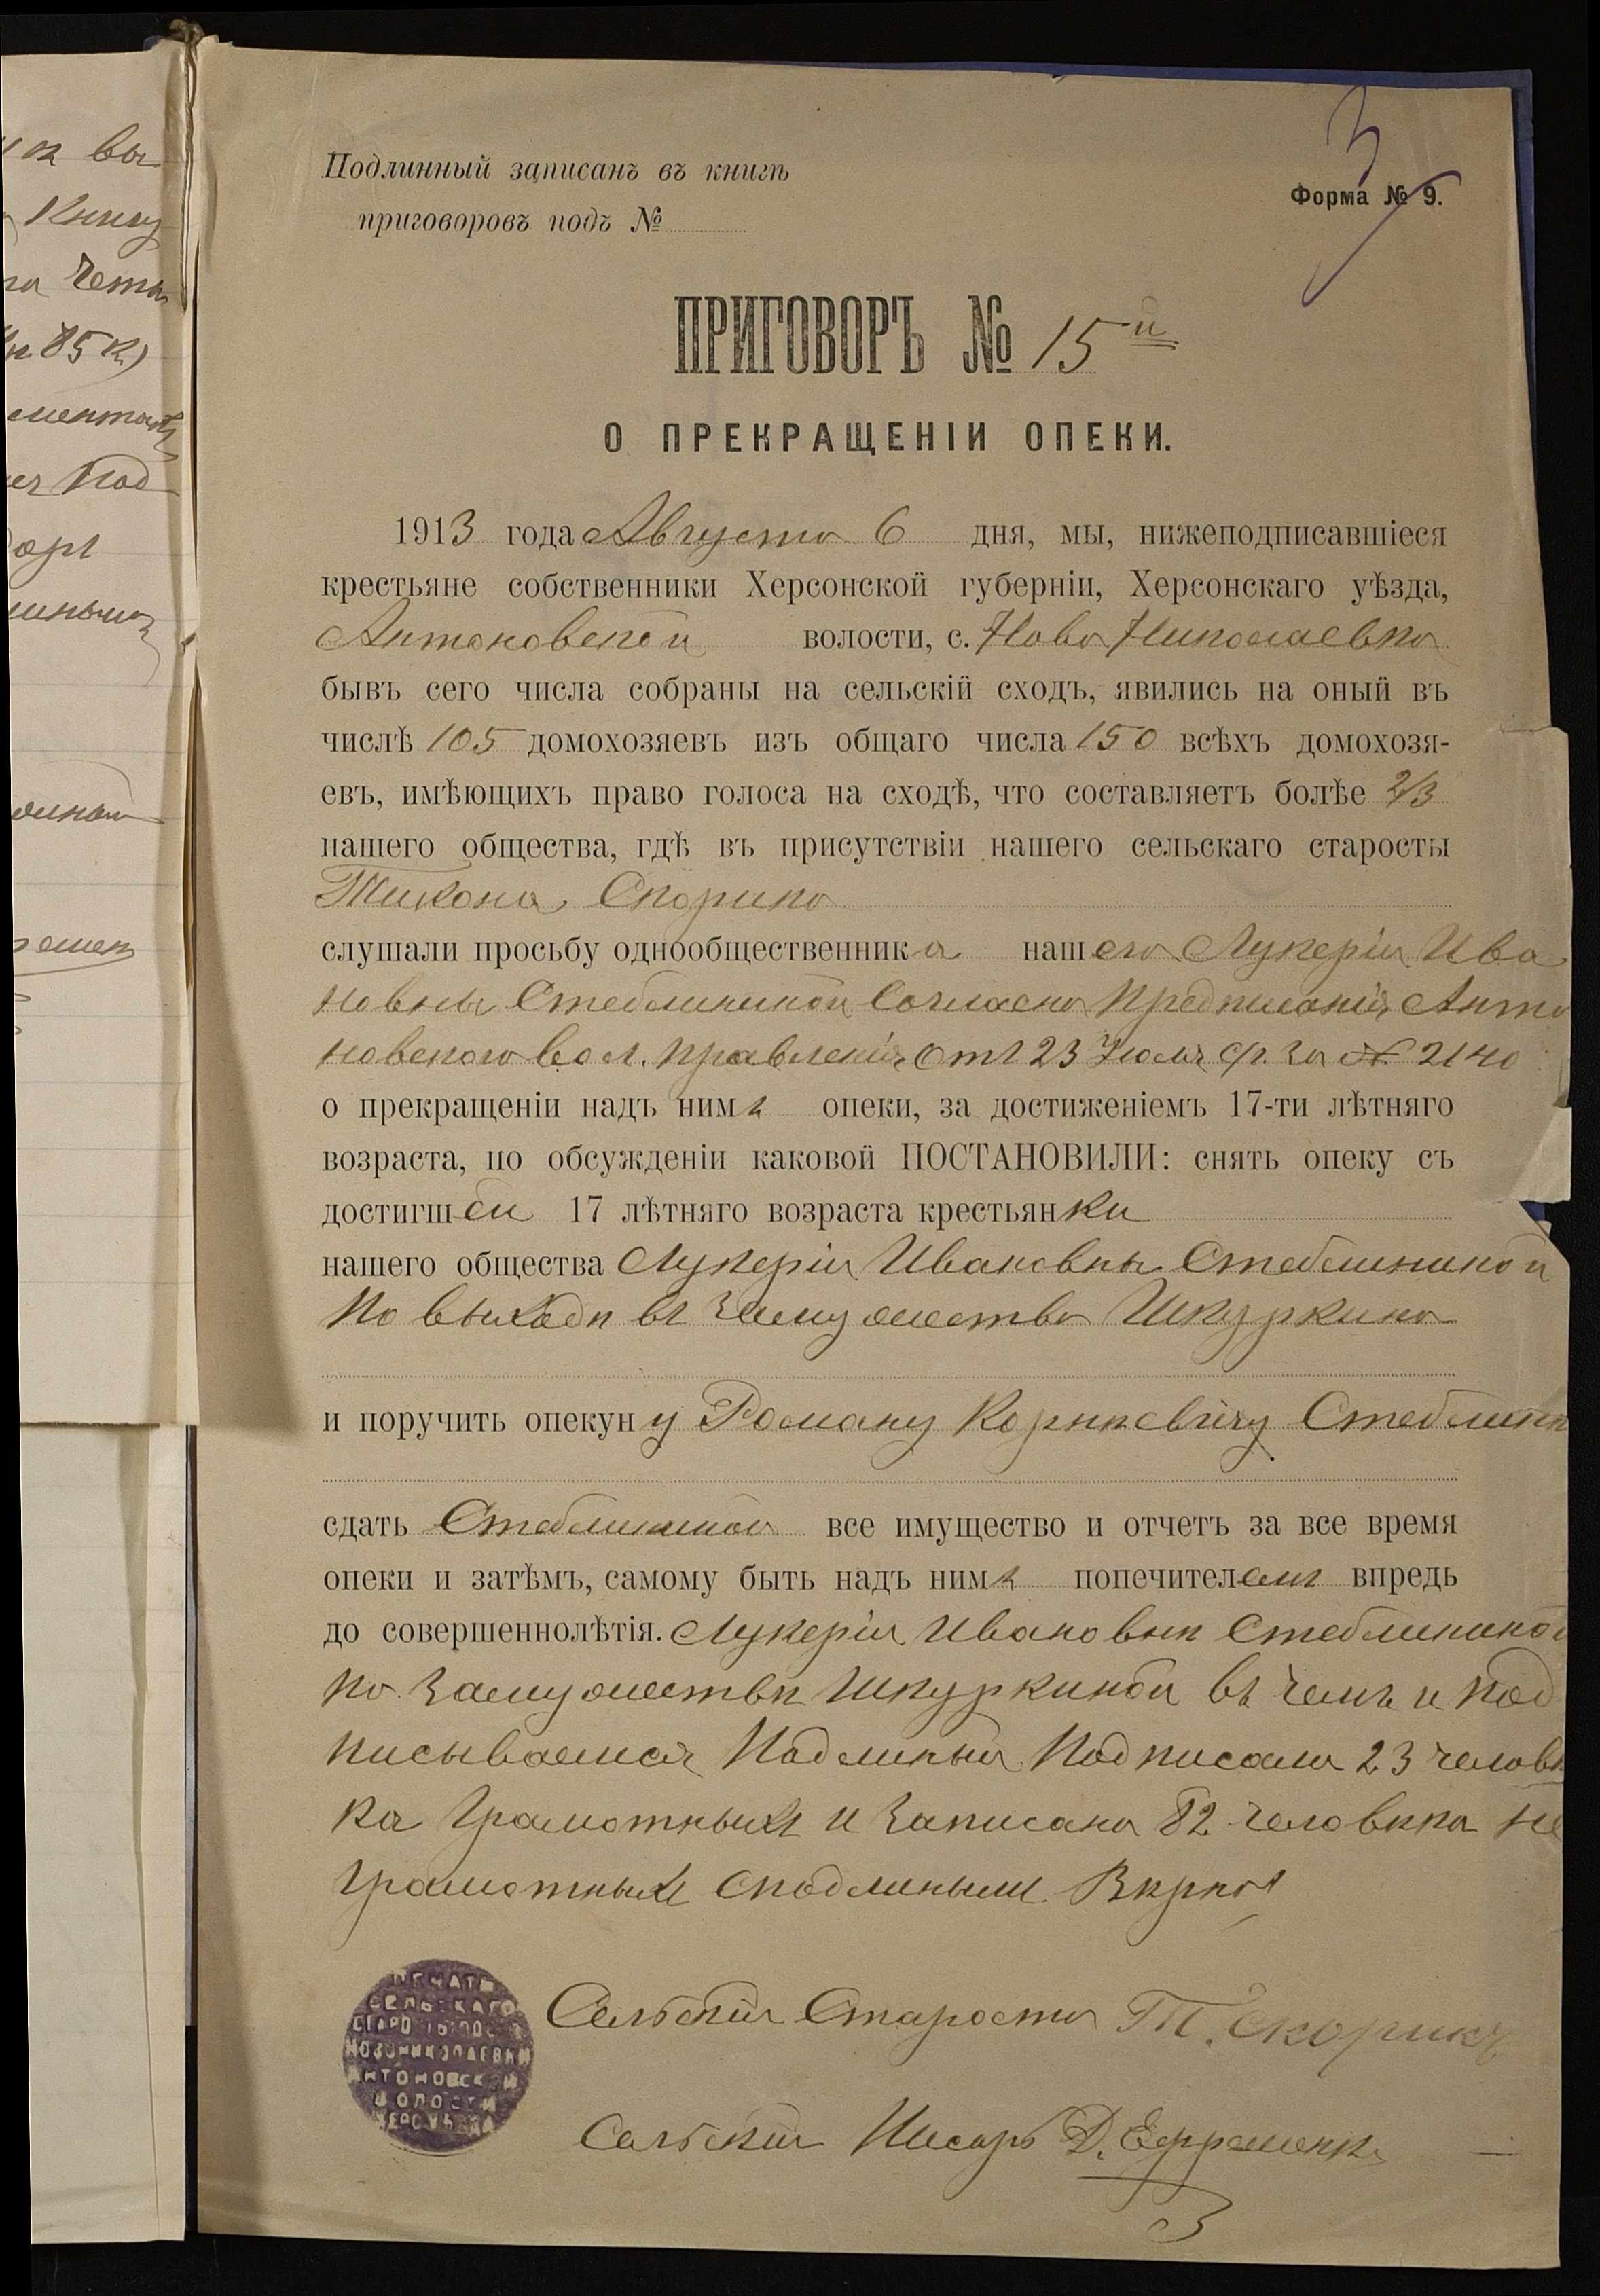 к вы
Книгу
85 к)
под
Подлинный записанъ въ книгѣ
приговоровъ подъ №
3
Форма № 9.
ПРИГОВОРЪ № 15й
О ПРЕКРАЩЕНІИ ОПЕКИ.
1913 года Августа 6 дня, мы, нижеподписавшіеся
крестьяне собственники Херсонской губерніи, Херсонскаго уѣзда,
Антоновской волости, с. Ново Николаевка
бывъ сего числа собраны на сельскій сходъ, явились на оный въ
числѣ 105 домохозяевъ изъ общаго числа 150 всѣхъ домохозя-
евъ, имѣющихъ право голоса на сходѣ, что составляетъ болѣе 2/3
нашего общества, гдѣ въ присутствіи нашего сельскаго старосты
Тихона Скорика
слушали просьбу однообщественника нашего Лукеріи Ива
новны Стеблининой Согласно Предписанія Анто
новского вол. правленія отъ 23 Июля с/г. за № 2140
о прекращеніи надъ нимъ опеки, за достиженіемъ 17-ти лѣтняго
возраста, по обсужденіи каковой ПОСТАНОВИЛИ: снять опеку съ
достигшей 17 лѣтняго возраста крестьянки
нашего общества Лукеріи Ивановны Стеблининой
по выходѣ въ замужество Шкуркина
и поручить опекуну Роману Корнѣевичу Стеблинк
сдать Стеблининой все имущество и отчетъ за все время
опеки и затѣмъ, самому быть надъ нимъ попечителемъ впредь
до совершеннолѣтія. Лукеріи Ивановнѣ Стеблининой
по замужествѣ Шкуркиной въ чемъ и под
писываемся Подлиный Подписали 23 человѣ
ка грамотныхъ и записано 82 человѣка не
грамотныхъ сподлинымъ Вѣрно
ПЕЧАТЬ
СЕЛЬСКАГО
СТАРОСТЫ ПОС.
НОВОНИКОЛАЕВКИ
АНТОНОВСКОЙ
ВОЛОСТИ
ХЕРС. УѢЗДА
Сельскій Староста Т. Скорикъ
Сельскій Писарь Д. Ефременко